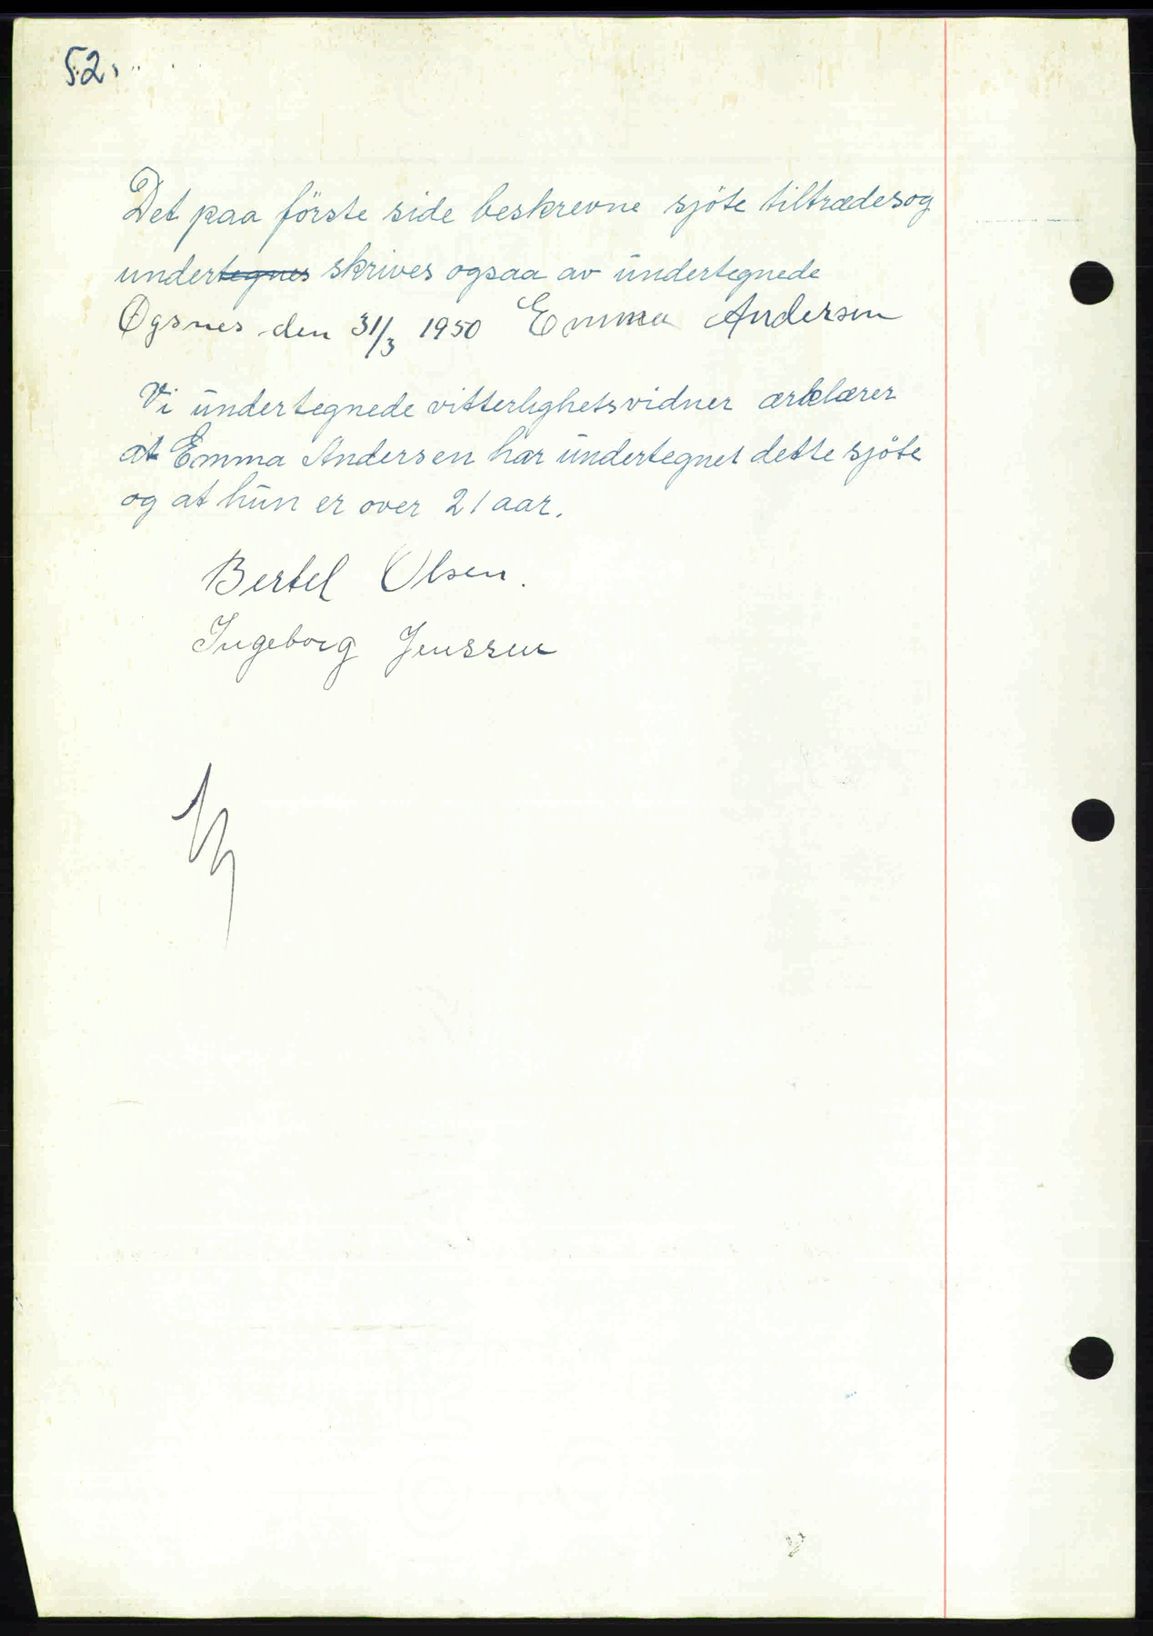 52.
Det paa förste side beskrevne sjöte tiltrædes og
undertegnes skrives ogsaa av undertegnede
Øgsnes den 31/3 1950 Emma Andersen
Vi undertegnede vitterlighetsvidner ærklærer
at Emma Andersen har undertegnet dette sjöte
og at hun er over 21 aar.
Bertel Olsen.
Ingeborg Jenssen